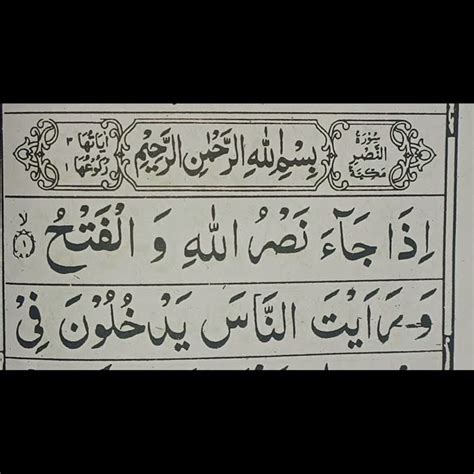 سُوْرَةُ
النَّصْرِ
مَكِّيَّةٌ
بِسْمِ اللّٰهِ الرَّحْمٰنِ الرَّحِيْمِ
اٰيَاتُهَا ٣
رُكُوْعُهَا ١
اِذَا جَآءَ نَصْرُ اللّٰهِ وَ الْفَتْحُ ۙ ١
وَ رَاَيْتَ النَّاسَ يَدْخُلُوْنَ فِیْ